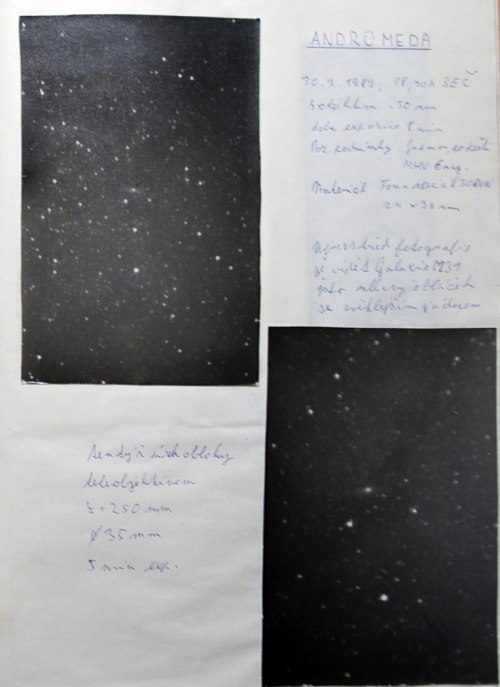 ANDROMEDA
30.9.1989, 18,30h SEČ
50 mm
doba expozice 8 min
Poz. podmínky: Jasno,
MHV 6mag.
Materiál Fomaspecial
24 × 36 mm
Uprostřed fotografie
je vidět Galaxie M31
jako mlhavý obláček
se světlejším jádrem
tentýž úsek oblohy
teleobjektivem
f = 250 mm
ø 35 mm
5 min exp.